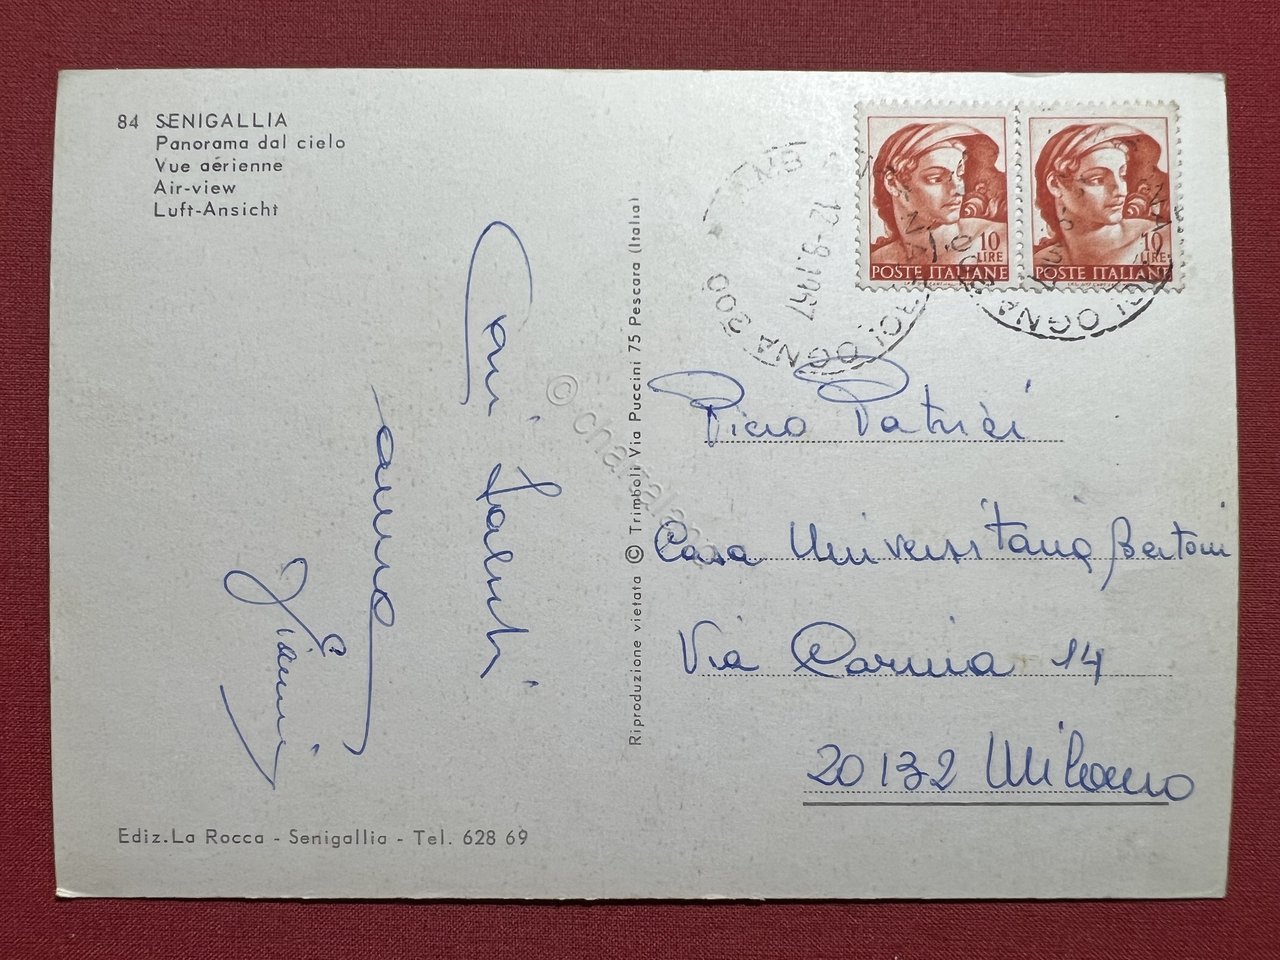 84 SENIGALLIA
Panorama dal cielo
Vue aérienne
Air-view
Luft-Ansicht
Cari Saluti
Gianni
Ediz.La Rocca - Senigallia - Tel. 628 69
Riproduzione vietata © Trimboli Via Puccini 75 Pescara (Italia)
10
LIRE
POSTE ITALIANE
10
LIRE
POSTE ITALIANE
12-9.1967
OGNA 200
Casa Universitaria Bertoni
Via 14
20132 Milano